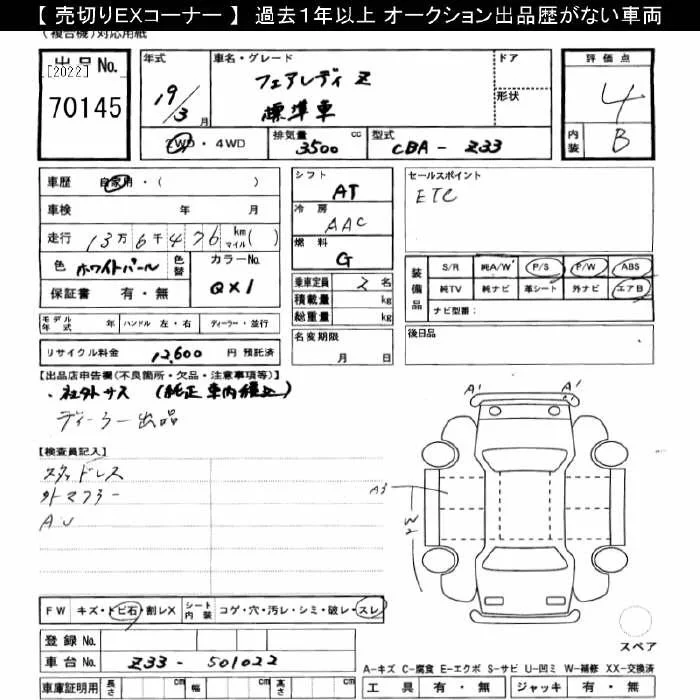 【 売切りEXコーナー 】 過去1年以上 オークション出品歴がない車両
(複合機)対応用紙
出品No.
[2022]
70145
年式 19/3月
車名・グレード フェアレディ Z 標準車
ドア
形状
評価点 4
内装 B
2WD・4WD
排気量 3500 cc
型式 CBA - Z33
車歴 自家用・( )
車検 年 月
走行 13万6千476 km マイル( )
色 ホワイトパール 色替
カラーNo. QX1
保証書 有・無
シフト AT
冷房 AAC
燃料 G
乗車定員 2 名
積載量 kg
総重量 kg
セールスポイント
ETC
装備品 S/R 純A/W P/S P/W ABS
純TV 純ナビ 革シート 外ナビ エアB
ナビ型番:
モデル年式 年 ハンドル 左・右 ディーラー・並行
名変期限 月 日
後日品
リサイクル料金 12,600 円 預託済
【出品店申告欄(不良箇所・欠品・注意事項等)】
・社外サス (純正 車内積込)
ディーラー出品
【検査員記入】
スタッドレス
外マフラー
AU
A1 A1
A3
W2
FW キズ・トビ石・割レX シート内装 コゲ・穴・汚レ・シミ・破レ・スレ
登録No.
車台No. Z33 - 501022
スペア
A-キズ C-腐食 E-エクボ S-サビ U-凹ミ W-補修 XX-交換済
車庫証明用 長さ cm 幅 cm 高さ cm
工具 有・無 ジャッキ 有・無